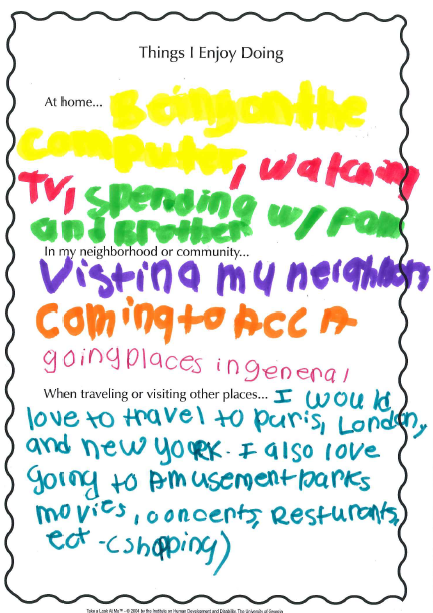 Things I Enjoy Doing
At home... Being on the
computer, watching
TV, spending w/ pom
and Brother
In my neighborhood or community...
Visting my neighbors
coming to ACC A
going places in general
When traveling or visiting other places... I would
love to travel to paris, London,
and new york. I also love
going to Amusement parks
movies, concerts, Resturants,
ect - (shopping)
Take a Look At Me™ - © 2004 by the Institute on Human Development and Disability, The University of Georgia